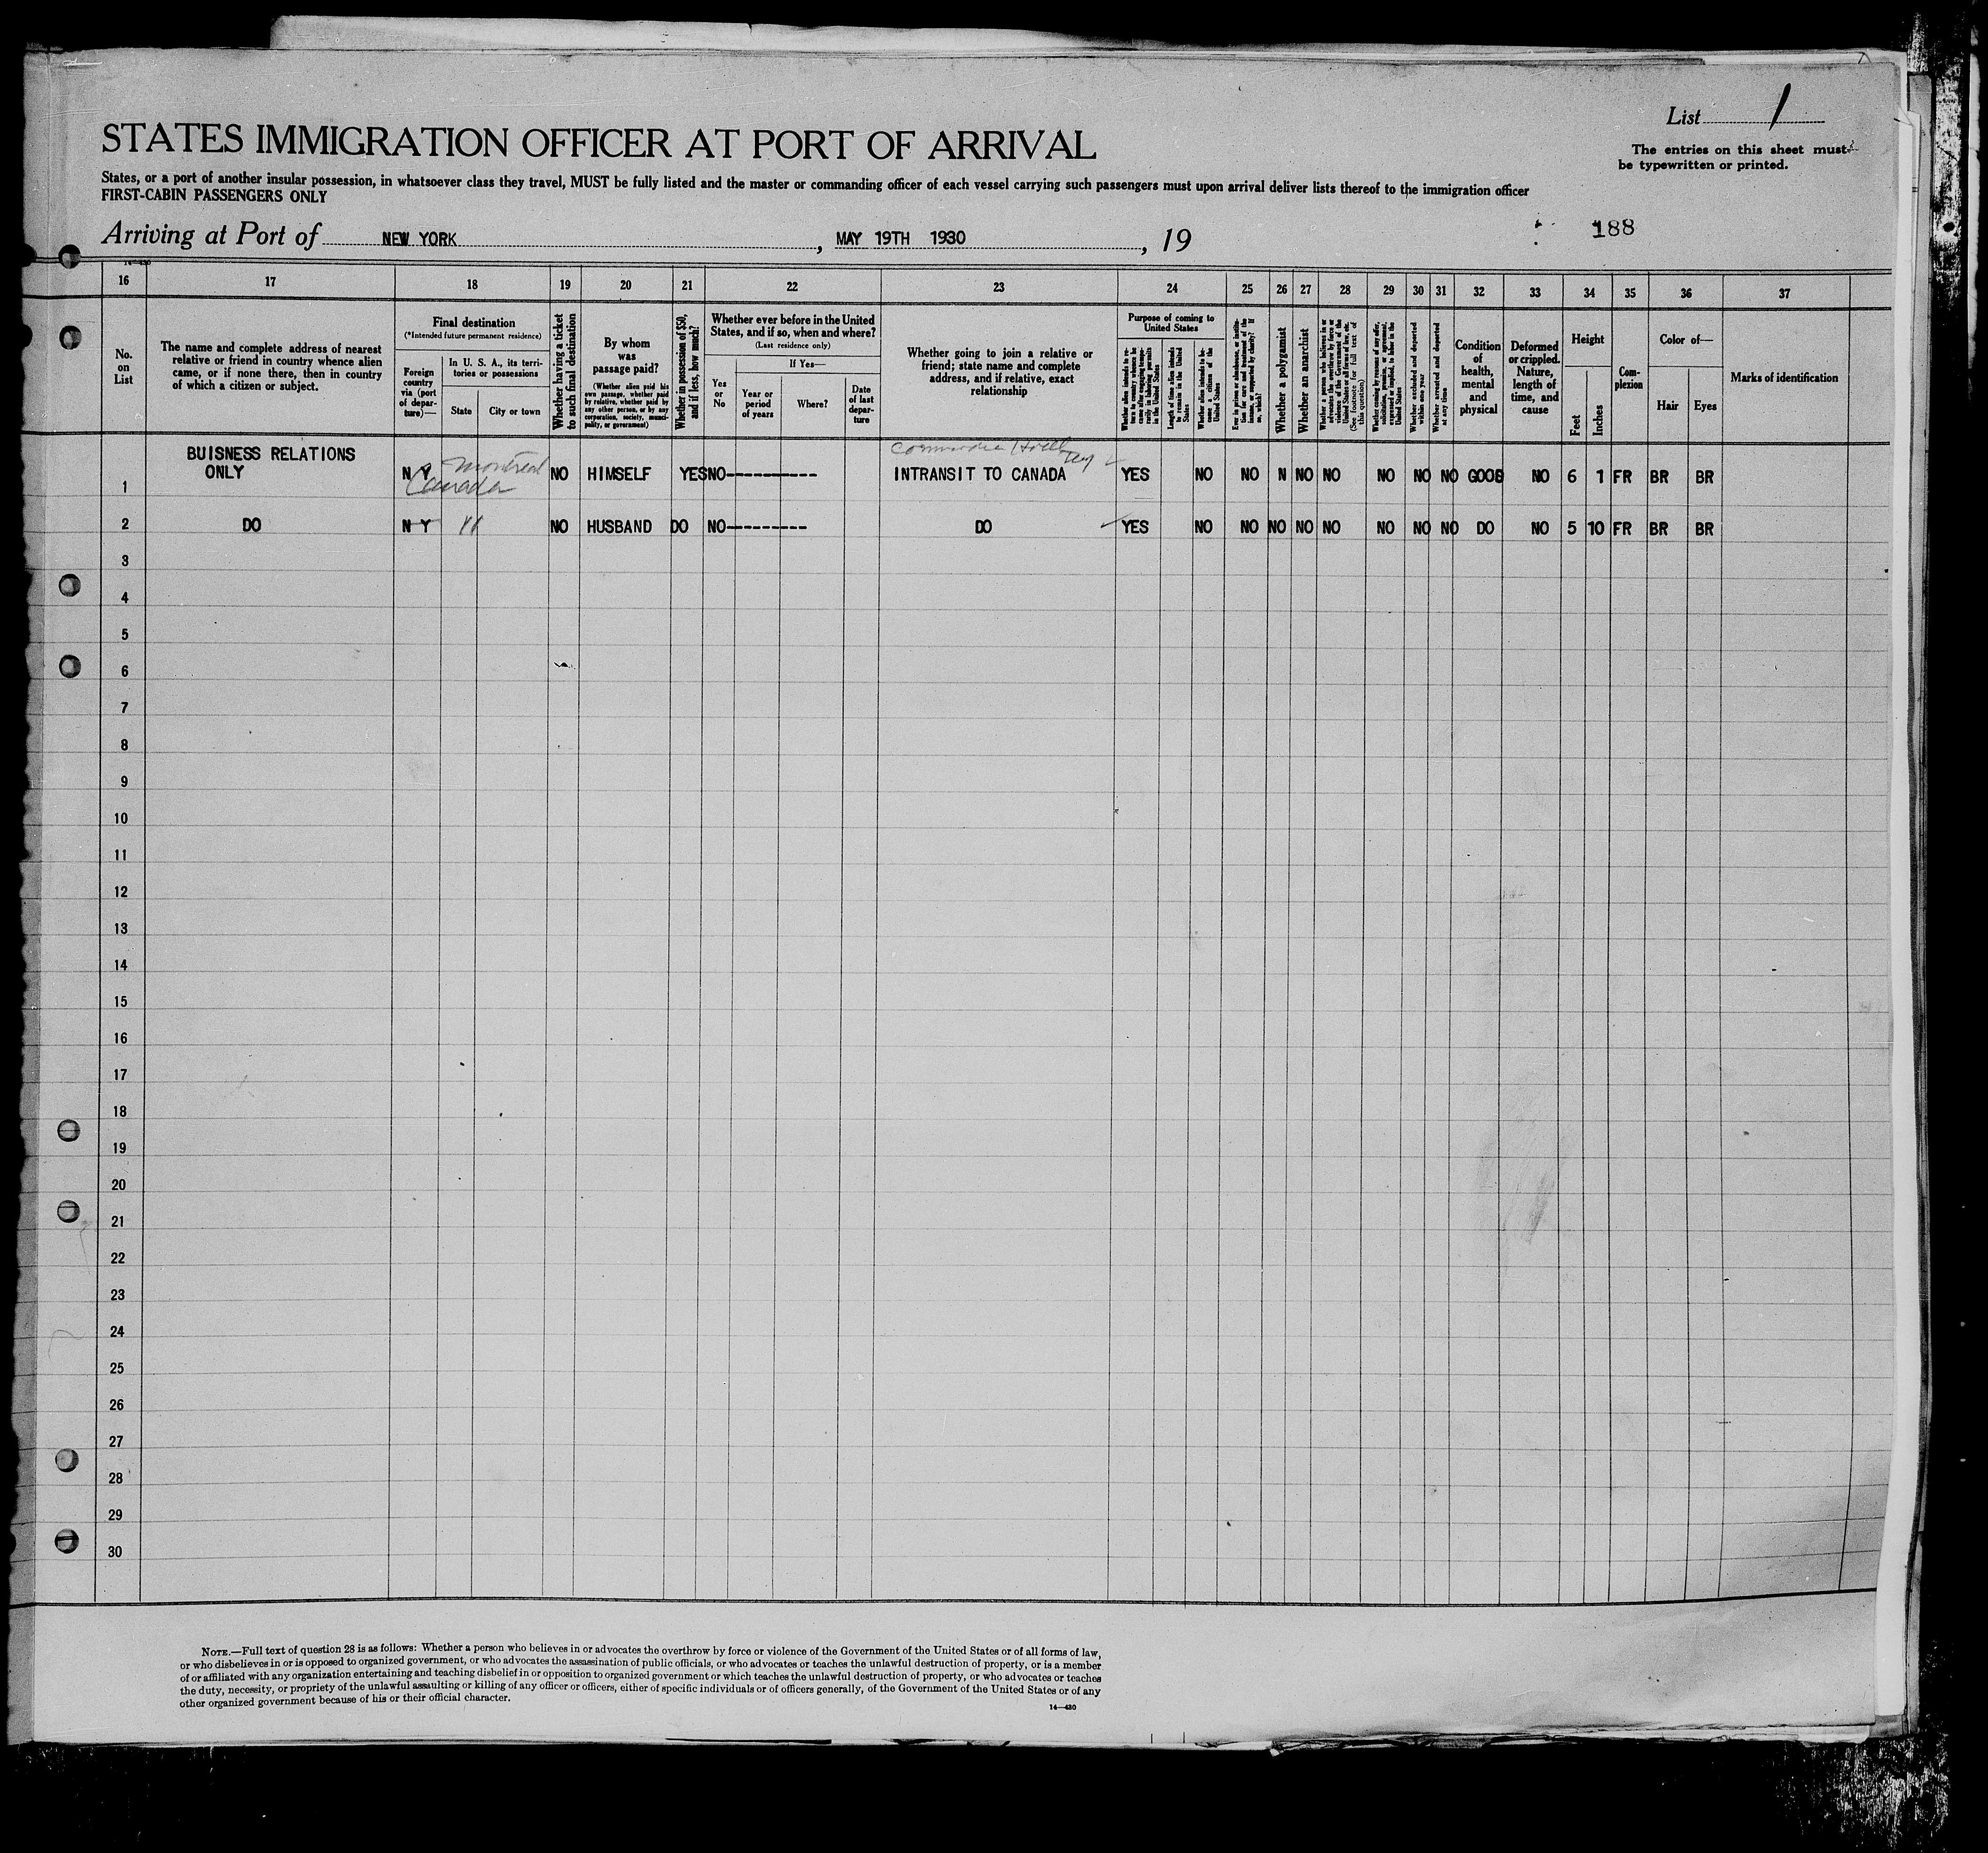 List 1
STATES IMMIGRATION OFFICER AT PORT OF ARRIVAL
The entries on this sheet must
be typewritten or printed.
States, or a port of another insular possession, in whatsoever class they travel, MUST be fully listed and the master or commanding officer of each vessel carrying such passengers must upon arrival deliver lists thereof to the immigration officer
FIRST-CABIN PASSENGERS ONLY
Arriving at Port of NEW YORK, MAY 19TH 1930, 19
188
16 17 18 19 20 21 22 23 24 25 26 27 28 29 30 31 32 33 34 35 36 37
No. on List
The name and complete address of nearest relative or friend in country whence alien came, or if none there, then in country of which a citizen or subject.
Final destination
(*Intended future permanent residence)
Foreign country via (port of departure)—
In U. S. A., its territories or possessions
State
City or town
Whether having a ticket to such final destination
By whom was passage paid?
(Whether alien paid his own passage, whether paid by relative, whether paid by any other person, or by any corporation, society, municipality, or government)
Whether in possession of $50, and if less, how much?
Whether ever before in the United States, and if so, when and where?
(Last residence only)
Yes or No
If Yes—
Year or period of years
Where?
Date of last departure
Whether going to join a relative or friend; state name and complete address, and if relative, exact relationship
Purpose of coming to United States
Length of time alien intends to remain in the United States
Whether alien intends to become a citizen of the United States
Whether a polygamist
Whether an anarchist
(See footnote for full text of this question)
Whether excluded and deported within one year
Whether arrested and deported at any time
Condition of health, mental and physical
Deformed or crippled. Nature, length of time, and cause
Height
Feet
Inches
Complexion
Color of—
Hair
Eyes
Marks of identification
1 BUISNESS RELATIONS ONLY N Y Montreal Canada NO HIMSELF YES NO---------- Hotel INTRANSIT TO CANADA YES NO NO N NO NO NO NO NO GOOD NO 6 1 FR BR BR
2 DO N Y " NO HUSBAND DO NO--------- DO YES NO NO NO NO NO NO NO NO DO NO 5 10 FR BR BR
3
4
5
6
7
8
9
10
11
12
13
14
15
16
17
18
19
20
21
22
23
24
25
26
27
28
29
30
NOTE.—Full text of question 28 is as follows: Whether a person who believes in or advocates the overthrow by force or violence of the Government of the United States or of all forms of law,
or who disbelieves in or is opposed to organized government, or who advocates the assassination of public officials, or who advocates or teaches the unlawful destruction of property, or is a member
of or affiliated with any organization entertaining and teaching disbelief in or opposition to organized government or which teaches the unlawful destruction of property, or who advocates or teaches
the duty, necessity, or propriety of the unlawful assaulting or killing of any officer or officers, either of specific individuals or of officers generally, of the Government of the United States or of any
other organized government because of his or their official character.
14—430